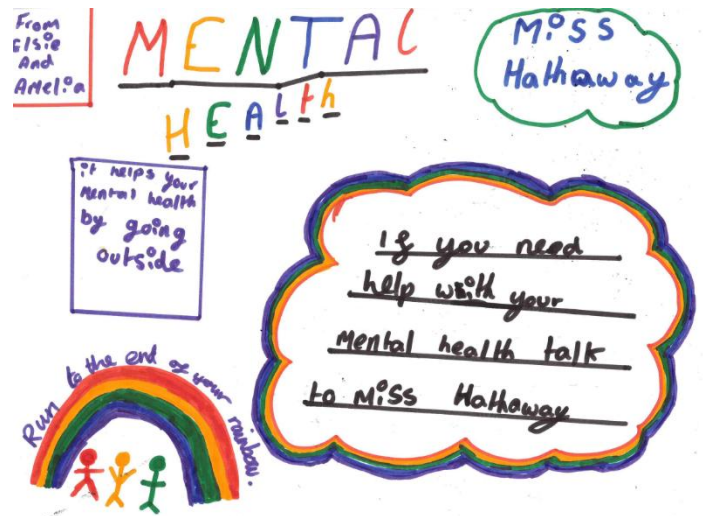 From
Elsie
And
Amelia
MENTAL
HEAlth
Miss
Hathaway
it helps your
Mental health
by going
outside
If you need
help with your
Mental health talk
to Miss Hathaway
Run to the end of your rainbow.